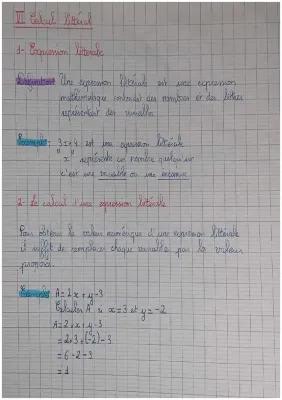 VI Calcul littéral
1- Expression littérale
Définition: Une expression littérale est une expression
mathématique contenant des nombres et des lettres
représentant des variables.
Exemple: 3x+4 est une expression littérale
"x" représente un nombre quelconque
c'est une variable ou une inconnue
2- Le calcul d'une expression littérale
Pour obtenir la valeur numérique d'une expression littérale
il suffit de remplacer chaque variable par la valeur
proposée.
Exemple: A=2x+y-3
Calculer A si x=3 et y=-2
A=2x+y-3
=2×3+(-2)-3
=6-2-3
=1